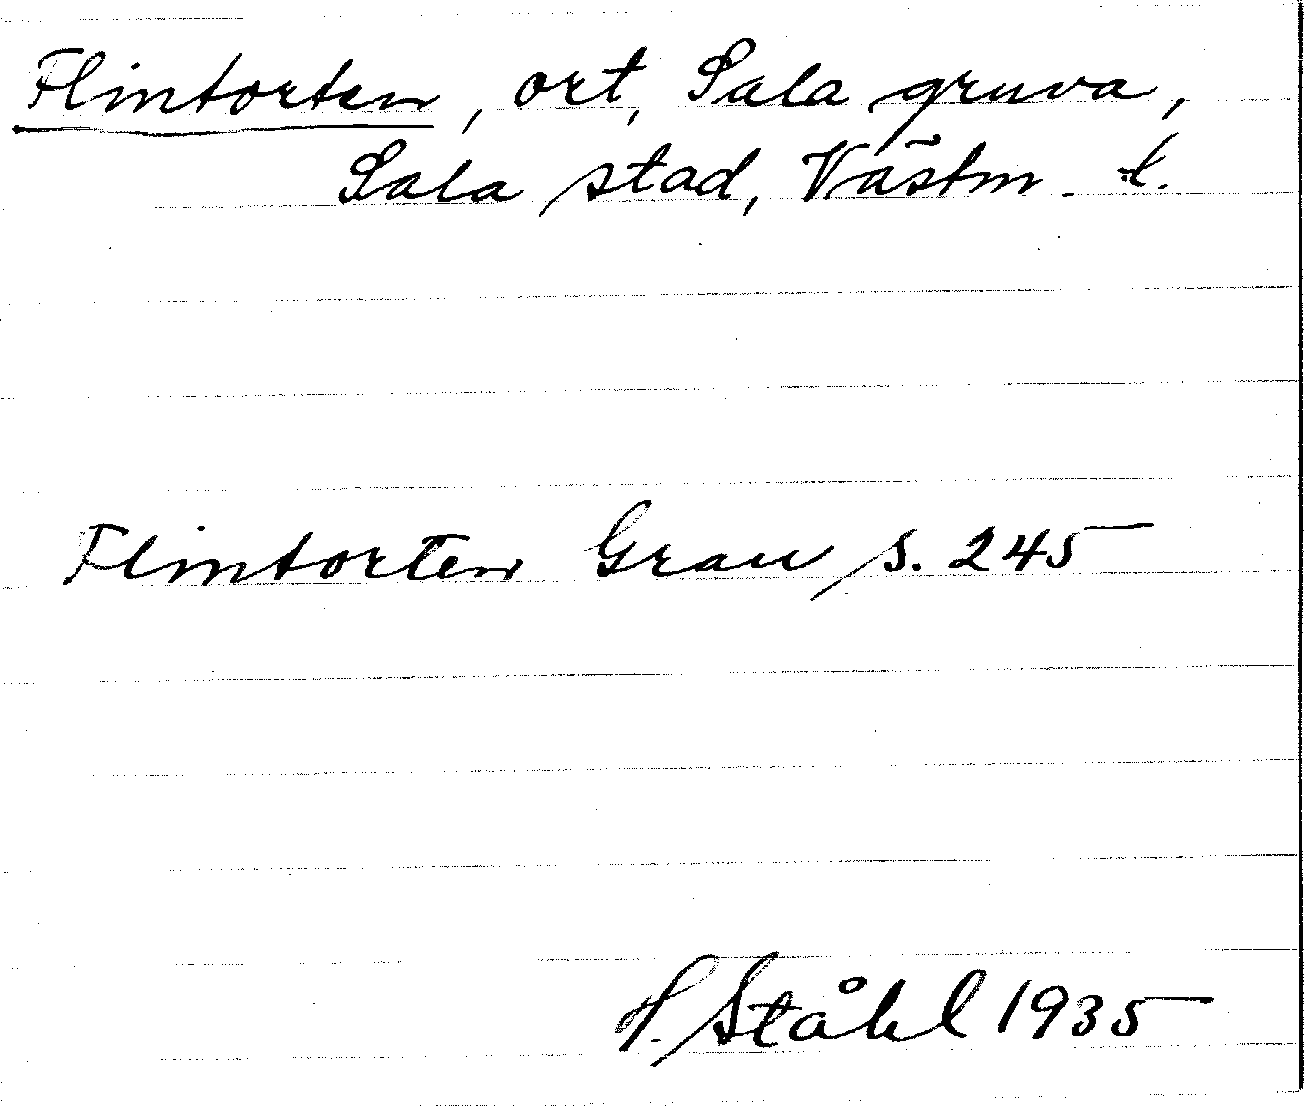 Flintorten, ort, Sala gruva,
Sala stad, Västm. l.
Flintorten Grau s. 245
H. Ståhl 1935